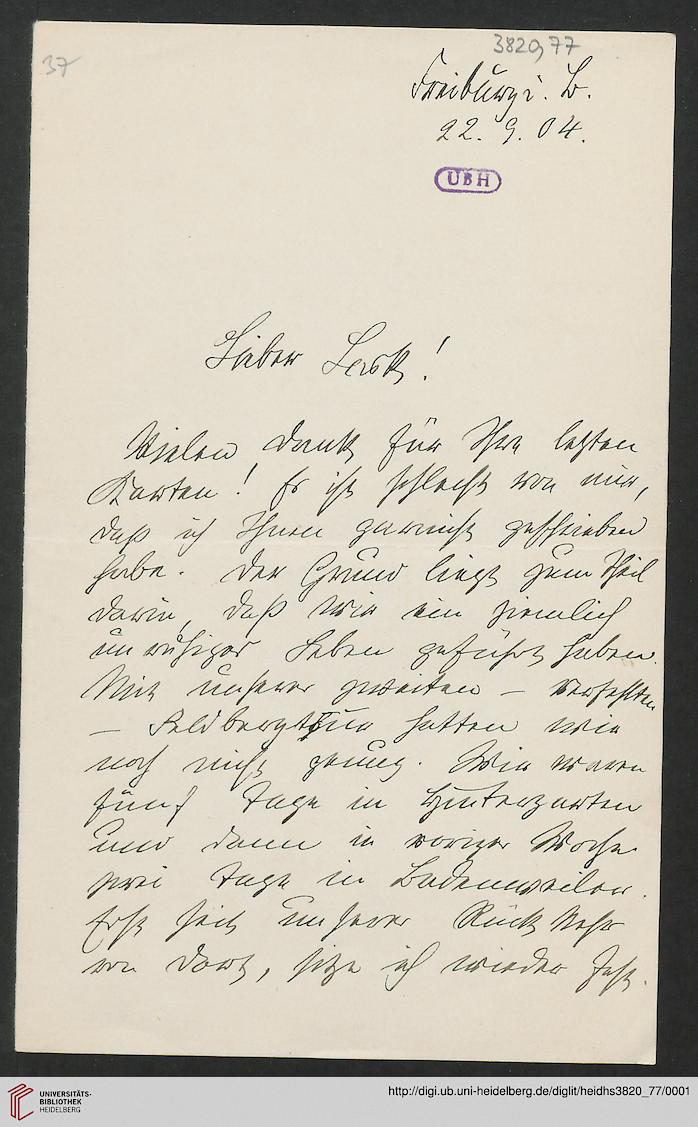 37
3820,77
Freiburg i. B.
22. 9. 04.
UBH
Lieber Lask!
Vielen Dank für Ihre letzten
Karten! Es ist schlecht von mir,
daß ich Ihnen garnicht geschrieben
habe. Der Grund liegt zum Theil
darin, daß wir ein ziemlich
unruhiges Leben geführt haben.
Mit unserer zweiten – verfehlten
– Feldbergtour hatten wir
noch nicht genug. Wir waren
fünf Tage in Hinterzarten
und dann in voriger Woche
zwei Tage in Badenweiler.
Erst seit unserer Rückkehr
von dort, sitze ich wieder fest.
UNIVERSITÄTS-
BIBLIOTHEK
HEIDELBERG
http://digi.ub.uni-heidelberg.de/diglit/heidhs3820_77/0001